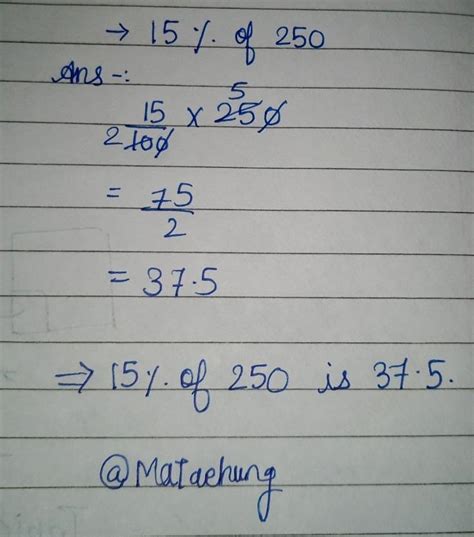 → 15 % of 250
Ans -:
5
15 × 250
2 100
= 75
2
= 37.5
⇒ 15 % of 250 is 37.5.
@Mataehung